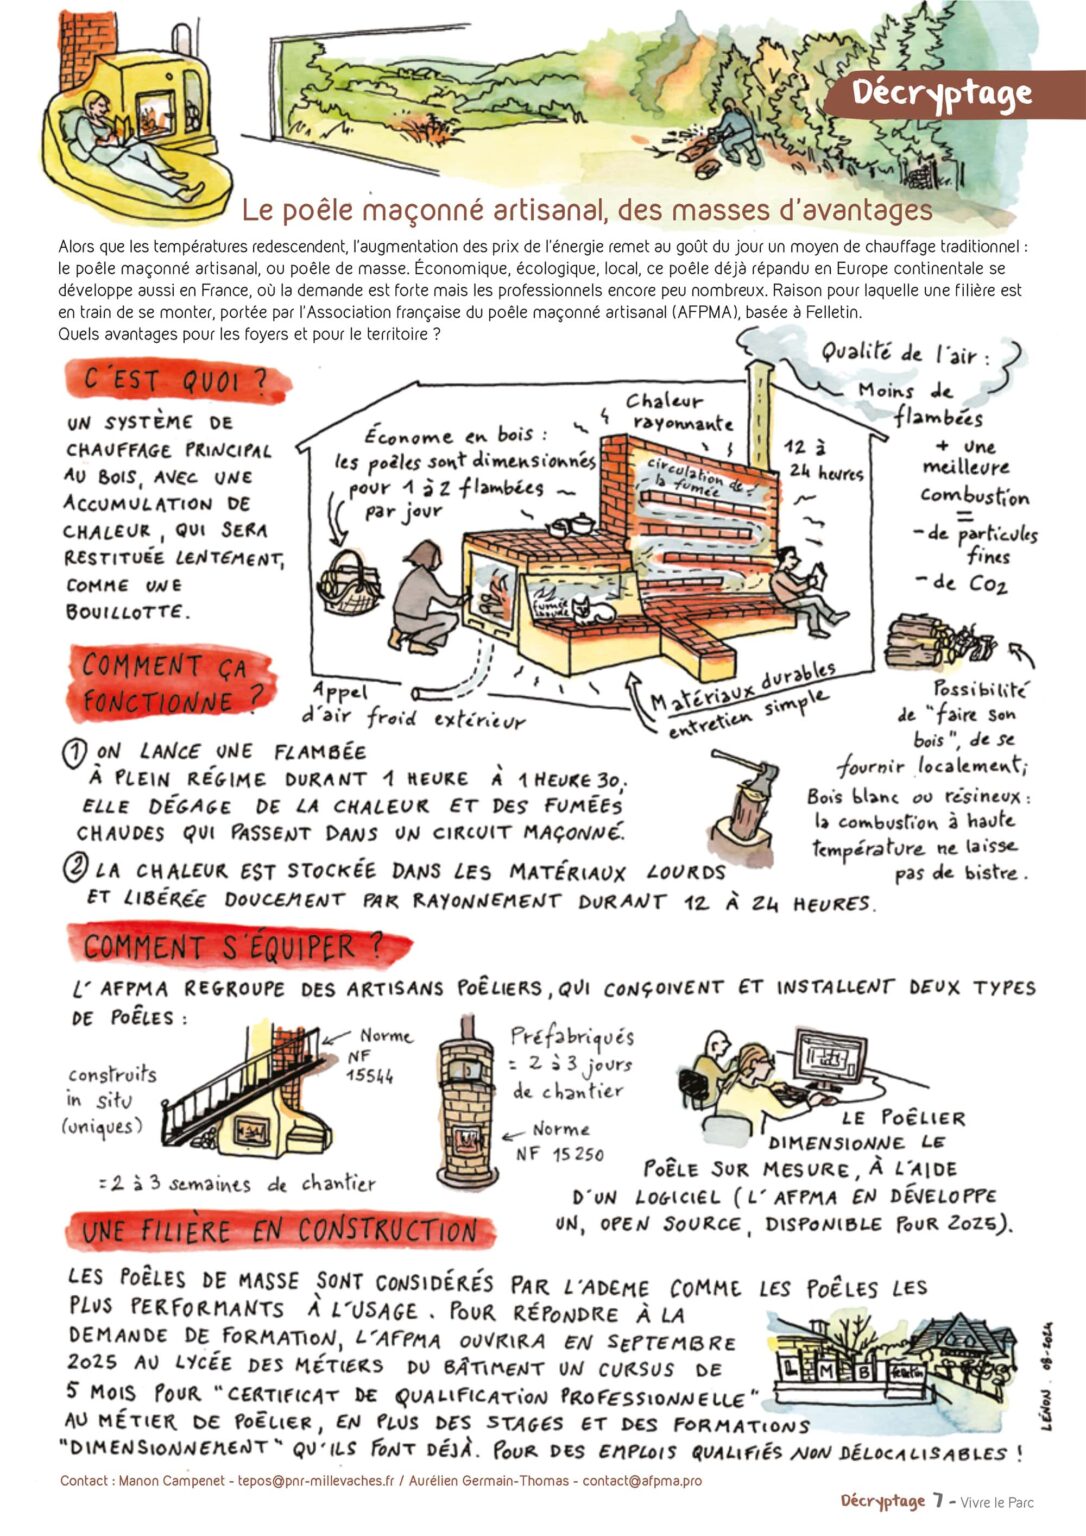 Décryptage
Le poêle maçonné artisanal, des masses d'avantages
Alors que les températures redescendent, l'augmentation des prix de l'énergie remet au goût du jour un moyen de chauffage traditionnel :
le poêle maçonné artisanal, ou poêle de masse. Économique, écologique, local, ce poêle déjà répandu en Europe continentale se
développe aussi en France, où la demande est forte mais les professionnels encore peu nombreux. Raison pour laquelle une filière est
en train de se monter, portée par l'Association française du poêle maçonné artisanal (AFPMA), basée à Felletin.
Quels avantages pour les foyers et pour le territoire ?
C'EST QUOI ?
UN SYSTÈME DE
CHAUFFAGE PRINCIPAL
AU BOIS, AVEC UNE
ACCUMULATION DE
CHALEUR, QUI SERA
RESTITUÉE LENTEMENT,
COMME UNE
BOUILLOTTE.
Économe en bois :
les poêles sont dimensionnés
pour 1 à 2 flambées
par jour
Chaleur
rayonnante
circulation de
la fumée
12 à
24 heures
fumée
chaude
Qualité de l'air :
Moins de
flambées
+ une
meilleure
combustion
=
- de particules
fines
- de CO2
Appel
d'air froid extérieur
Matériaux durables
entretien simple
Possibilité
de "faire son
bois", de se
fournir localement;
Bois blanc ou résineux :
la combustion à haute
température ne laisse
pas de bistre.
COMMENT ÇA
FONCTIONNE ?
1 ON LANCE UNE FLAMBÉE
À PLEIN RÉGIME DURANT 1 HEURE À 1 HEURE 30;
ELLE DÉGAGE DE LA CHALEUR ET DES FUMÉES
CHAUDES QUI PASSENT DANS UN CIRCUIT MAÇONNÉ.
2 LA CHALEUR EST STOCKÉE DANS LES MATÉRIAUX LOURDS
ET LIBÉRÉE DOUCEMENT PAR RAYONNEMENT DURANT 12 À 24 HEURES.
COMMENT S'ÉQUIPER ?
L'AFPMA REGROUPE DES ARTISANS POÊLIERS, QUI CONÇOIVENT ET INSTALLENT DEUX TYPES
DE POÊLES :
construits
in situ
(uniques)
Norme
NF
15544
= 2 à 3 semaines de chantier
Préfabriqués
= 2 à 3 jours
de chantier
Norme
NF 15250
LE POÊLIER
DIMENSIONNE LE
POÊLE SUR MESURE, À L'AIDE
D'UN LOGICIEL (L'AFPMA EN DÉVELOPPE
UN, OPEN SOURCE, DISPONIBLE POUR 2025).
UNE FILIÈRE EN CONSTRUCTION
LES POÊLES DE MASSE SONT CONSIDÉRÉS PAR L'ADEME COMME LES POÊLES LES
PLUS PERFORMANTS À L'USAGE. POUR RÉPONDRE À LA
DEMANDE DE FORMATION, L'AFPMA OUVRIRA EN SEPTEMBRE
2025 AU LYCÉE DES MÉTIERS DU BÂTIMENT UN CURSUS DE
5 MOIS POUR "CERTIFICAT DE QUALIFICATION PROFESSIONNELLE"
AU MÉTIER DE POÊLIER, EN PLUS DES STAGES ET DES FORMATIONS
"DIMENSIONNEMENT" QU'ILS FONT DÉJÀ. POUR DES EMPLOIS QUALIFIÉS NON DÉLOCALISABLES !
L M B Felletin
LÉNON. 08-2024
Contact : Manon Campenet - tepos@pnr-millevaches.fr / Aurélien Germain-Thomas - contact@afpma.pro
Décryptage 7 - Vivre le Parc